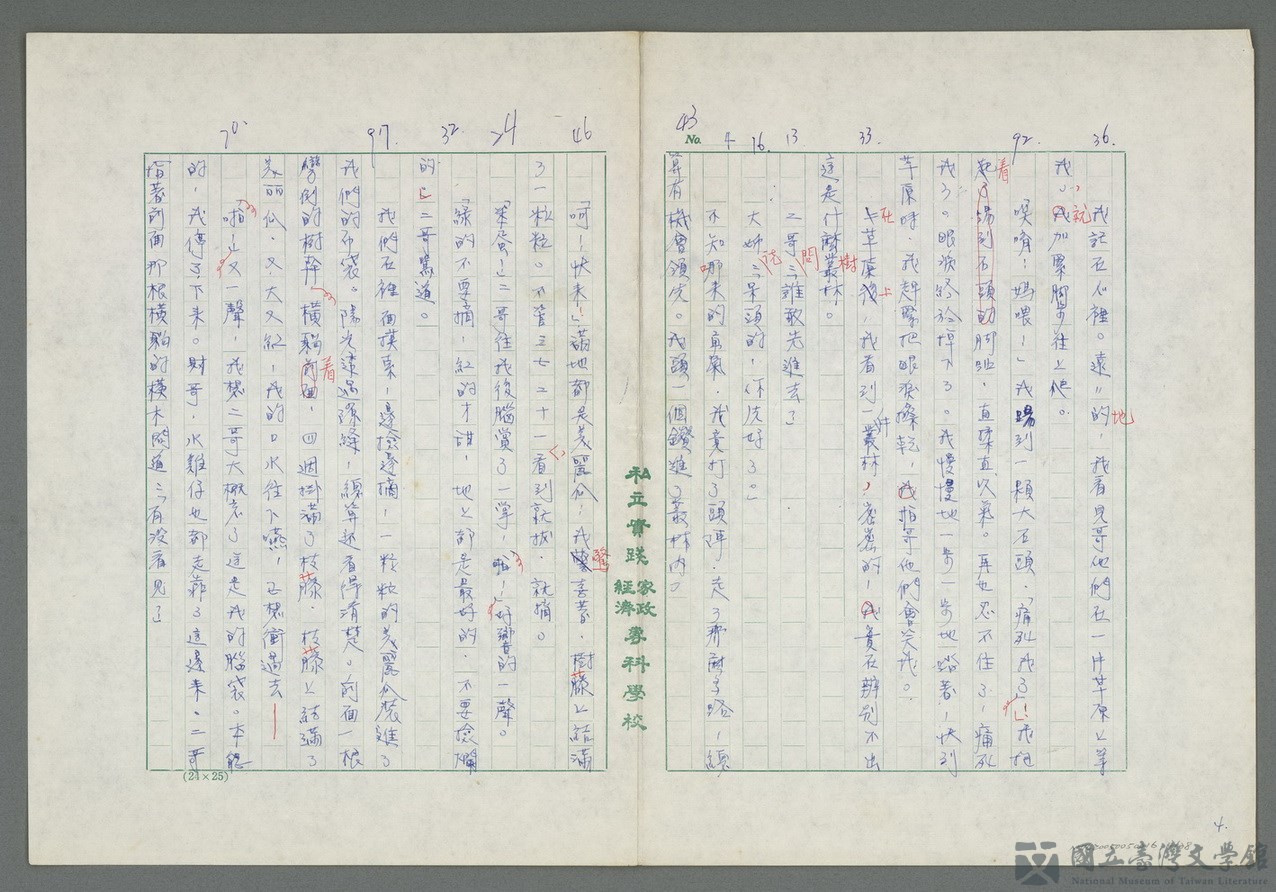 36.
92.
33.
13
16.
4
No.
43
我記在心裡。遠〃的,我看見哥他們在一片草原上等
地
我,我加緊脚步往上爬。
就
唉唷!媽喂!」我踢到一顆大石頭「痛死我了」!我抱
着
着踢到石頭的脚趾,直揉直吹氣。再也忍不住了,痛死
我了。眼淚終於掉下了。我慢慢地一步一步地踏著,快到
草原時,我趕緊把眼淚擦乾,我怕哥他們會笑我。
上草原後,我看到一叢林,密密的,我實在辨別不出
在
上
片
這是什麼叢林。
樹
二哥:「誰敢先進去」
問
大姊:「呆頭的,你先好了。」
阮
不知哪來的勇氣,我竟打了頭陣,走了那麼多路,總
算有機會領先。我頭一個鑽進了叢林內。
私立實踐家政經濟專科學校
46
24
32.
97.
70.
呵!快來!」滿地都是美麗瓜,我驚喜著,樹藤上結滿
了一粒粒。不管三七二十一看到就拔,就摘。
「笨蛋!」二哥往我後腦賞了一掌,啪!好響的一聲。
「綠的不要摘,紅的才甜,地上都是最好的,不要撿爛
的」二哥罵道。
我們在裡面摸索,邊撿邊摘,一粒粒的美麗瓜裝進了
我們的布袋。陽光透過隙縫,總算能看得清楚。前面一根
彎倒的樹幹,橫躺前面,四週掛滿了枝藤,枝藤上結滿了
着
美麗瓜,又大又紅,我的口水往下嚥,正想衝過去
「啪!」又一聲,我想二哥大概忘了這是我的腦袋。本能
的,我停了下來。財哥,水雞仔也都走靠了這邊來。二哥
指著前面那根橫躺的橫木問道:「有沒看見」
(24×25)
4.
國立臺灣文學館
National Museum of Taiwan Literature